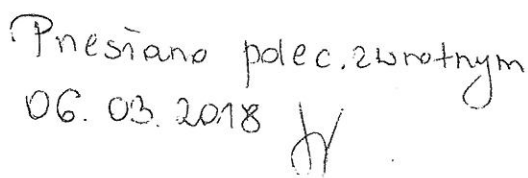 Przesłano polec. zwrotnym
06. 03. 2018